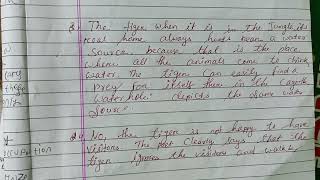 The tiger when it is in the Jungle its
real home always hunts near a water
source because that is the place
where all the animals come to drink
water. The tiger can easily find a
prey for itself then in the
waterhole: depicts the same water
Source
No, the tiger is not happy to have
visitors. The Poet clearly says that the
tiger ignores the visitors and walk